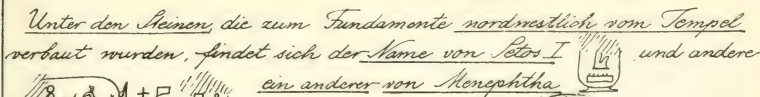 Unter den Steinen, die zum Fundamente nordwestlich vom Tempel
verbaut wurden, findet sich der Name von Setos I und andere
ein anderer von Menephtha